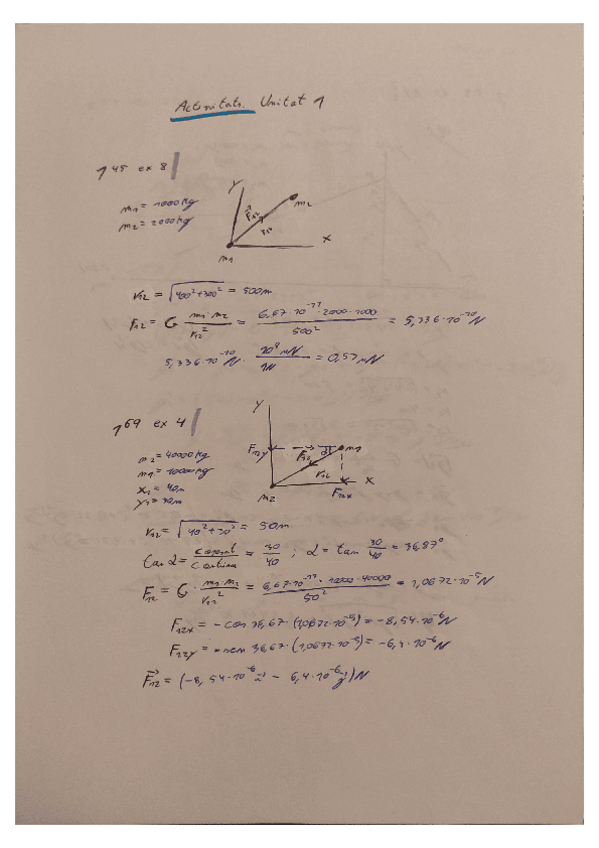 Activitats Unitat 1
145 ex 8
m1 = 1000 Kg
m2 = 2000 Kg
Y
m2
F12
r12
X
m1
r12 = √400²+300² = 500m
F12 = G · m1·m2 / r12² = 6,67·10⁻¹¹·2000·1000 / 500² = 5,336·10⁻¹⁰ N
5,336·10⁻¹⁰ N · 10⁹ nN / 1N = 0,53 nN
169 ex 4
Y
m2 = 40000 Kg
m1 = 10000 Kg
x1 = 40m
y1 = 30m
F12y
F12
α
m1
r12
m2
F12x
X
r12 = √40²+30² = 50m
tan α = c oposat / c contina = 30/40 ; α = tan 30/40 = 36,87°
F12 = G · m1·m2 / r12² = 6,67·10⁻¹¹·10000·40000 / 50² = 1,0672·10⁻⁵ N
F12x = -cos 36,67 · (1,0672·10⁻⁵) = -8,54·10⁻⁶ N
F12y = -sen 36,67 · (1,0672·10⁻⁵) = -6,4·10⁻⁶ N
F⃗12 = (-8,54·10⁻⁶ i⃗ - 6,4·10⁻⁶ j⃗) N